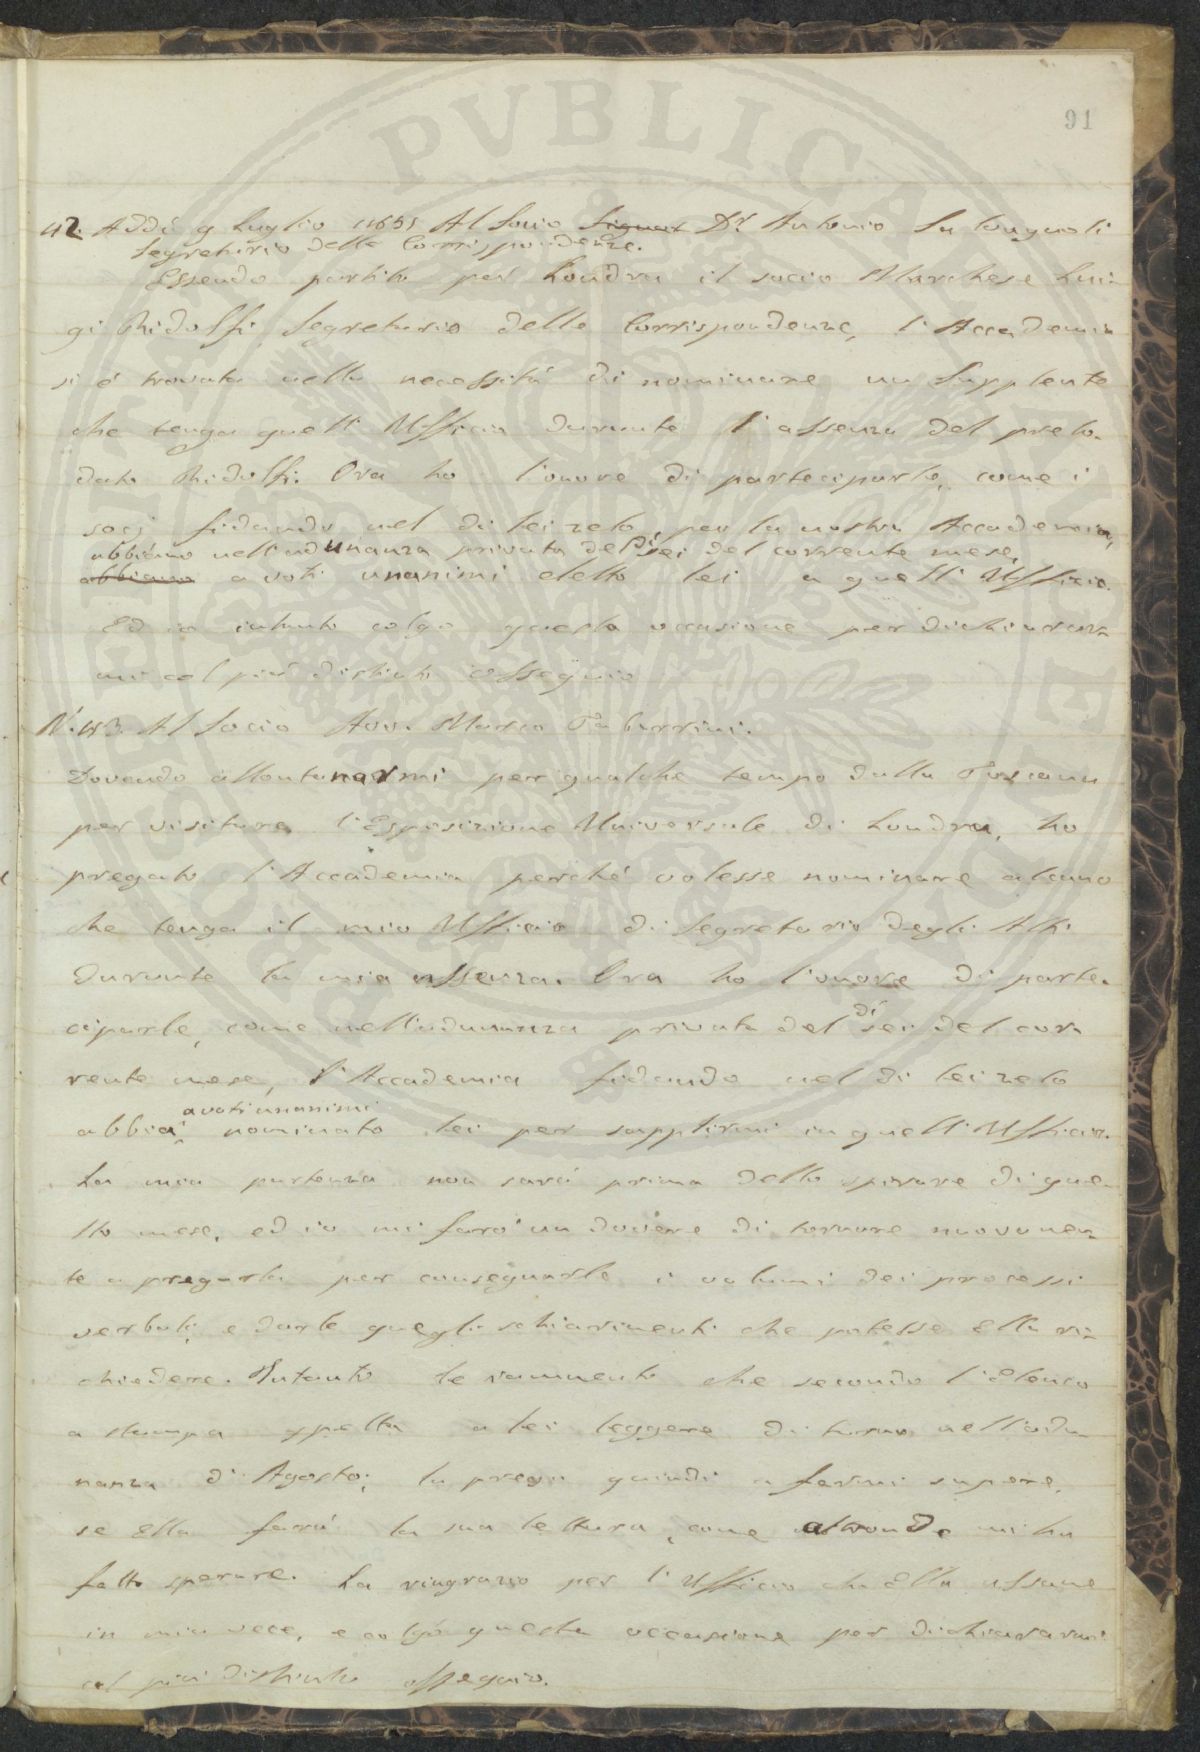 91
42. Addì 9 Luglio 1851 Al Socio Signor Dr Antonio Salvagnoli
Segretario delle Corrispondenze.
Essendo partito per Londra il socio Marchese Lui-
gi Ridolfi Segretario delle Corrispondenze, l'Accademia
si é trovata nella necessitá di nominare un Supplente
che tenga quell'Ufficio durante l'assenza del prelo-
dato Ridolfi. Ora ho l'onore di parteciparle, come i
socj fidando nel di lei zelo, per la nostra Accademia,
abbiamo nell'adunanza privata del dì sei del corrente mese,
abbiamo a voti unanimi eletto lei a quell'Ufficio.
Ed io intanto colgo questa occasione per dichiarar-
mi col piú distinto ossequio
N. 43. Al Socio Avv. Marco Tabarrini.
Dovendo allontanarmi per qualche tempo dalla Toscana
per visitare l'Esposizione Universale di Londra, ho
pregato l'Accademia perché volesse nominare alcuno
che tenga il mio Ufficio di Segretario degli Atti
durante la mia assenza. Ora ho l'onore di parte-
ciparle, come nell'adunanza privata del dì sei del cor-
rente mese, l'Accademia fidando nel di lei zelo
a voti unanimi
abbia nominato lei per supplirmi in quell'Ufficio.
La mia partenza non sará prima dello spirare di que-
sto mese, ed io mi faró un dovere di tornare nuovamen-
te a pregarla per consegnarle i volumi dei processi
verbali, e darle quegli schiarimenti che potesse Ella ri-
chiedere. Intanto le rammento che secondo l'Elenco
a stampa spetta a lei leggere di turno nell'adu-
nanza di Agosto; la prego quindi a farmi sapere,
se Ella fará la sua lettura, come altronde mi ha
fatto sperare. La ringrazio per l'Ufficio ch'Ella assume
in mia vece, e colgo questa occasione per dichiararmi
col piú distinto ossequio.